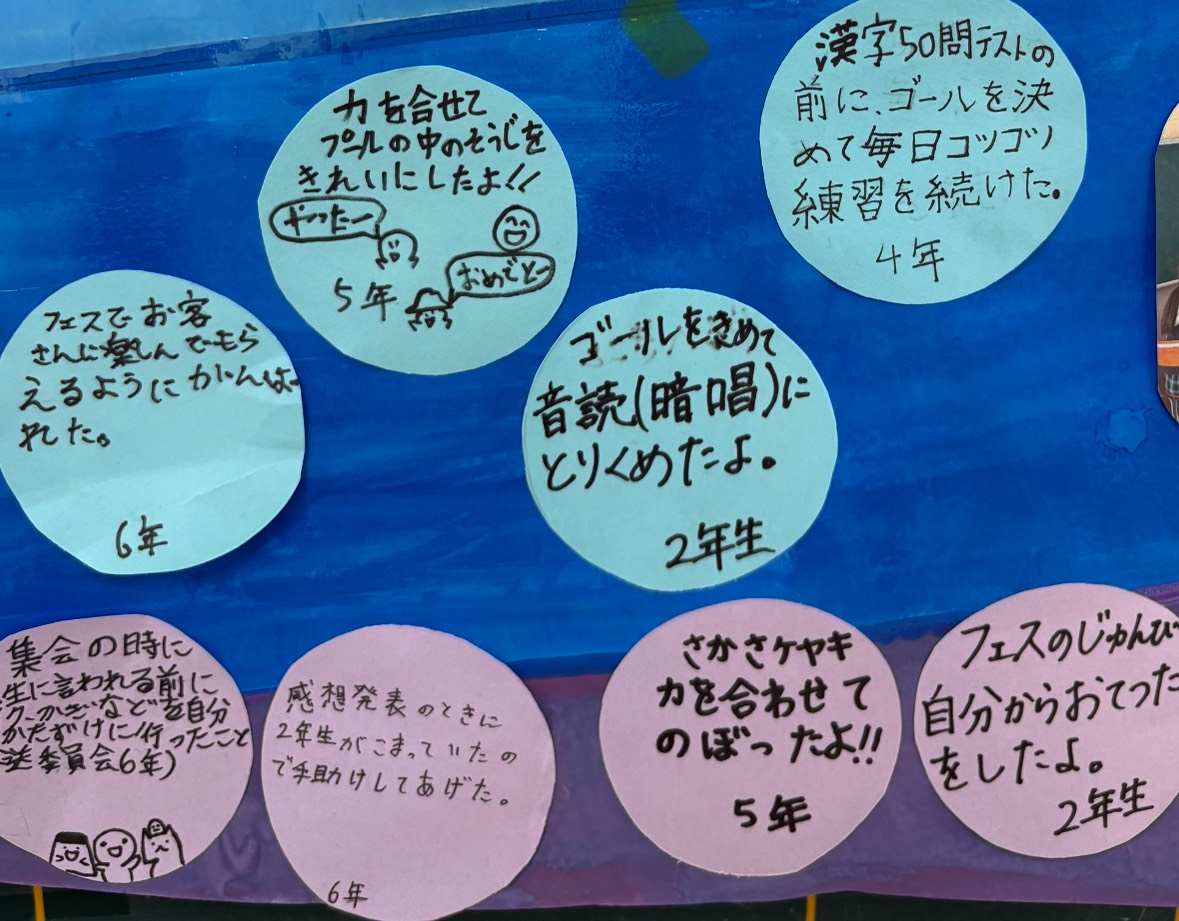 力を合せて
プールの中のそうじを
きれいにしたよ!!
やったー
おめでとー
5年
漢字50問テストの
前に、ゴールを決
めて毎日コツコツ
練習を続けた。
4年
フェスでお客
さんに楽しんでもら
えるようにがんば
れた。
6年
ゴールをきめて
音読(暗唱)に
とりくめたよ。
2年生
集会の時に
生に言われる前に
かぎなどを自分
かたずけに行ったこと
送委員会6年)
感想発表のときに
2年生がこまっていたの
で手助けしてあげた。
6年
さかさケヤキ
力を合わせて
のぼったよ!!
5年
フェスのじゅんび
自分からおてつた
をしたよ。
2年生